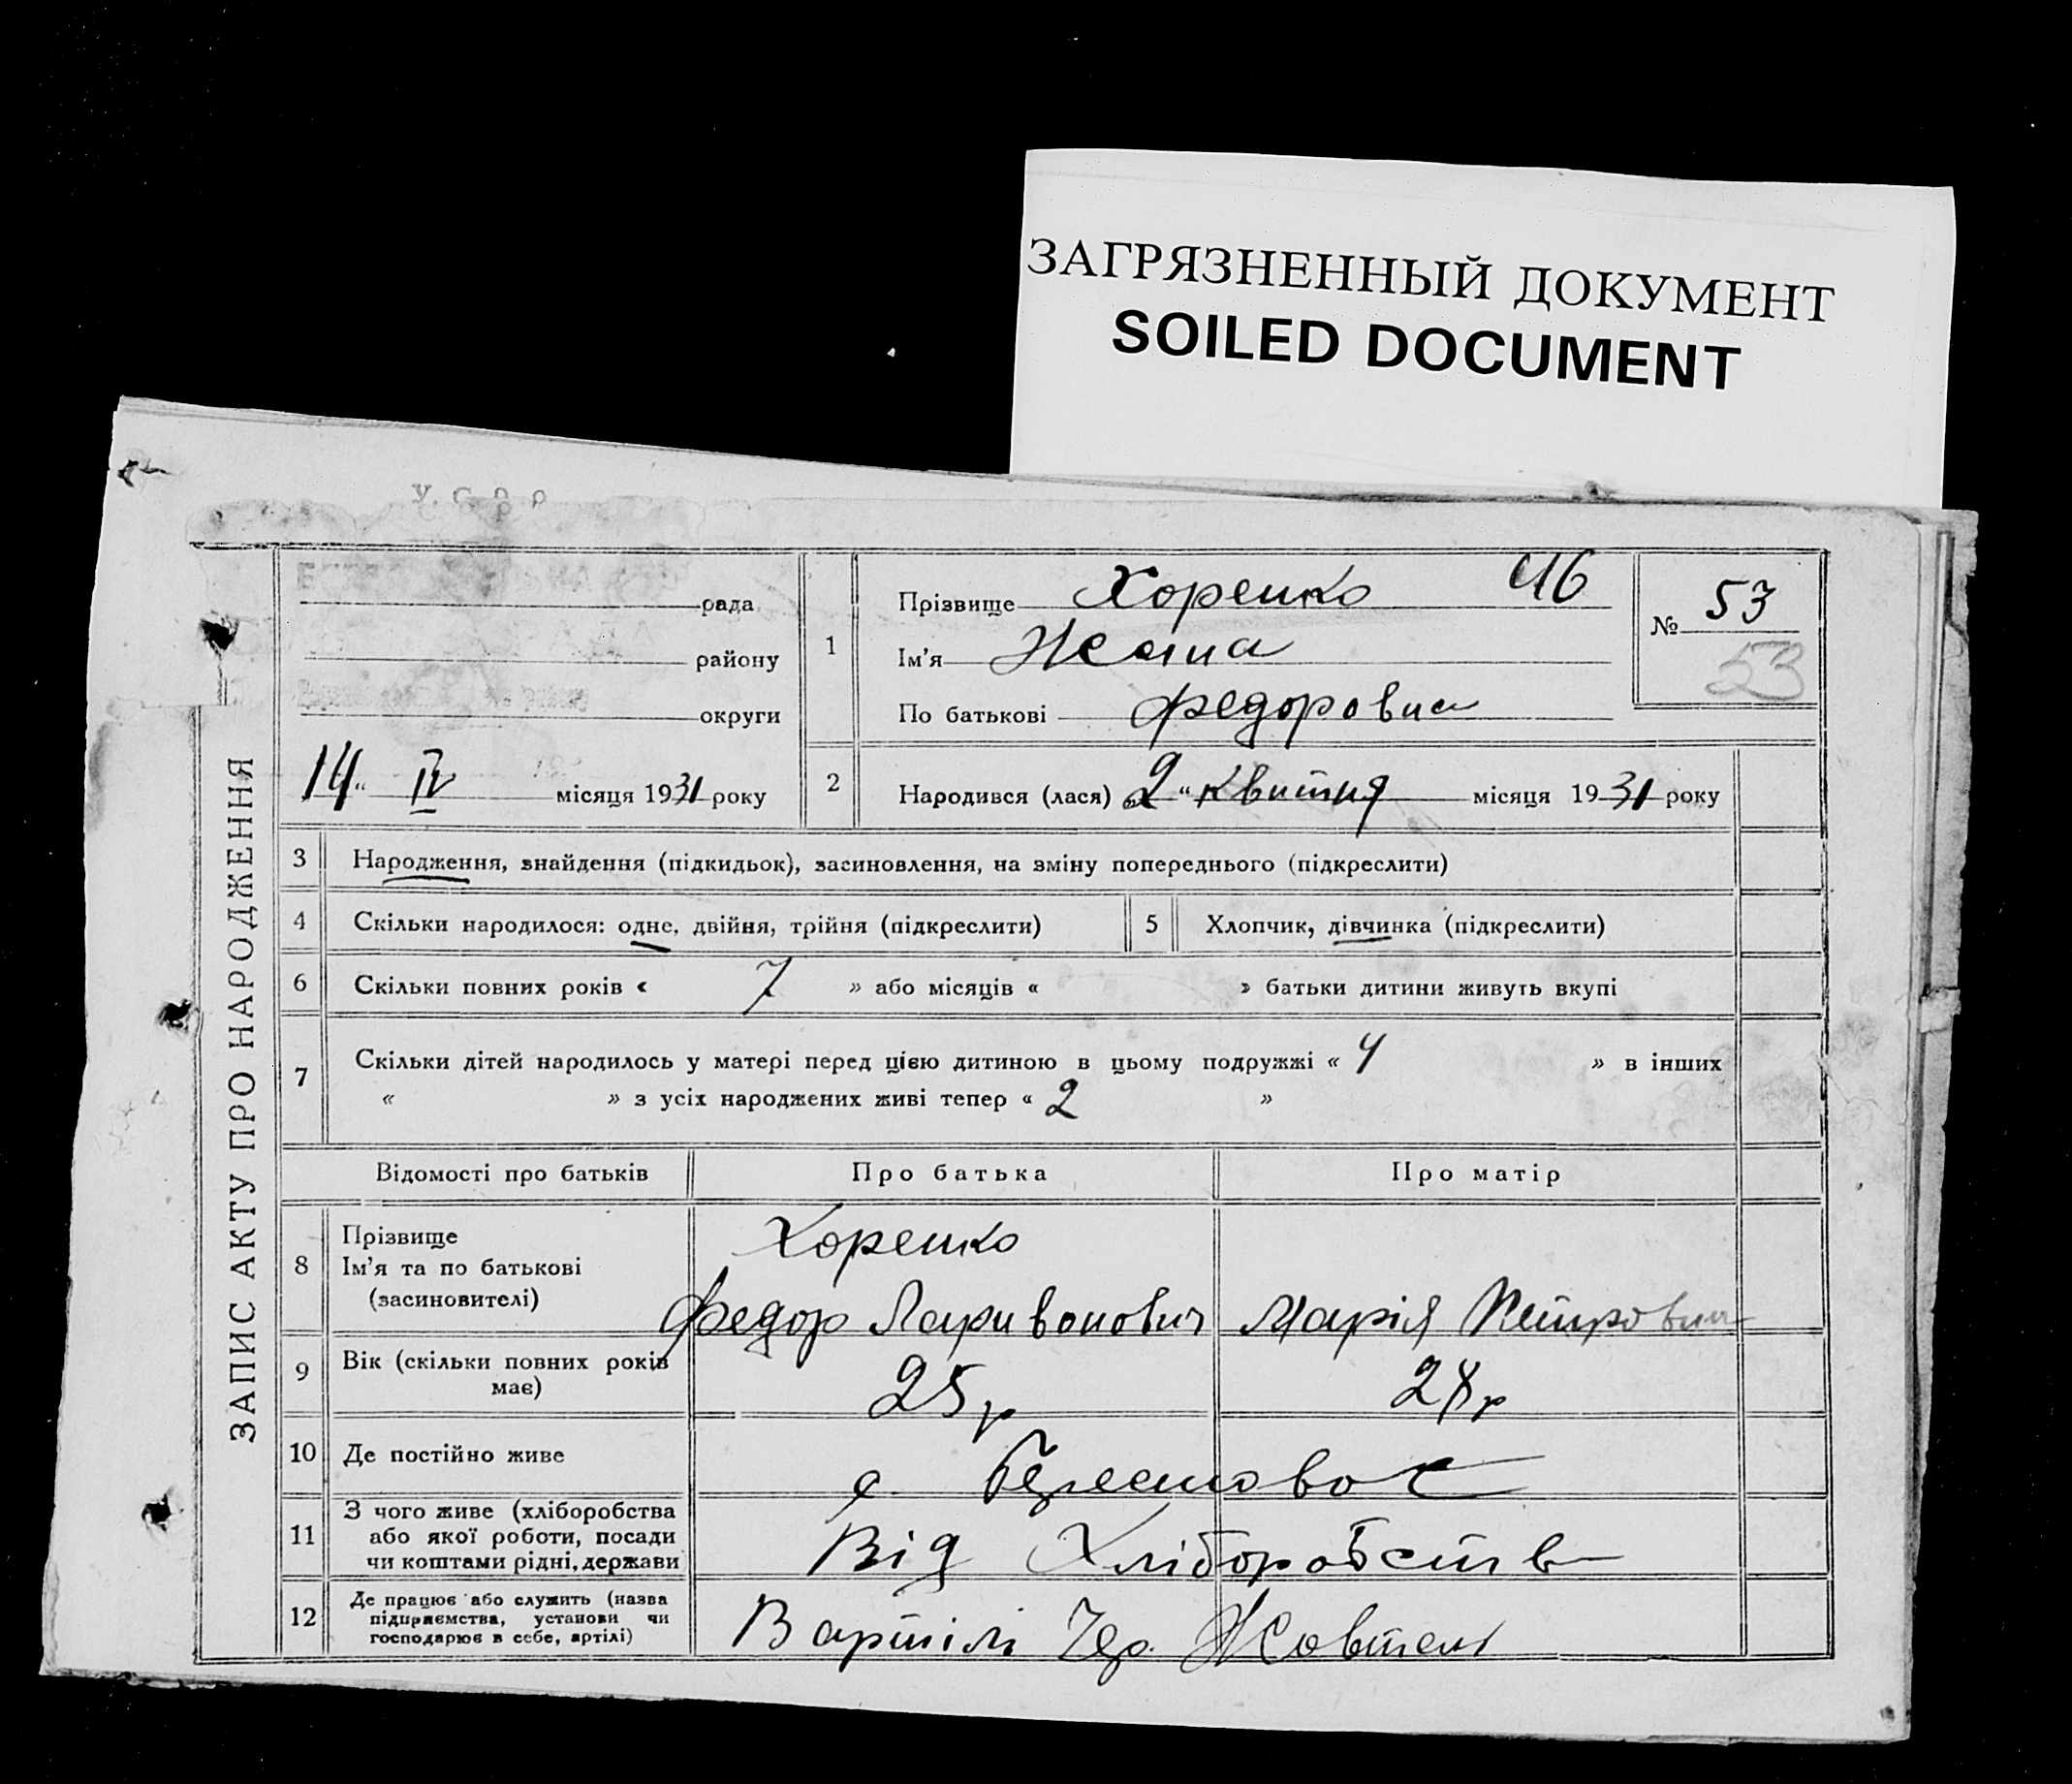 ЗАГРЯЗНЕННЫЙ ДОКУМЕНТ
SOILED DOCUMENT
У.С.Р.Р
ЗАПИС АКТУ ПРО НАРОДЖЕННЯ
рада
району
округи
14 " IV місяця 1931 року
1
Прізвище Хоренко
Ім'я Жана
По батькові Федоровна
№ 53
53
2
Народився (лася) „2 “ квитня місяця 1931 року
3 Народження, знайдення (підкидьок), засиновлення, на зміну попереднього (підкреслити)
4 Скільки народилося: одне, двійня, трійня (підкреслити)
5 Хлопчик, дівчинка (підкреслити)
6 Скільки повних років « 7 » або місяців « » батьки дитини живуть вкупі
7 Скільки дітей народилось у матері перед цією дитиною в цьому подружжі « 4 » в інших
« » з усіх народжених живі тепер « 2 »
Відомості про батьків Про батька Про матір
8 Прізвище
Ім'я та по батькові
(засиновителі)
Хоренко
Федор Ларивонович Марія Петровна
9 Вік (скільки повних років
має)
25 р 28 р
10 Де постійно живе
с.
11 З чого живе (хліборобства
або якої роботи, посади
чи коштами рідні, держави
Від Хліборобств
12 Де працює або служить (назва
підприємства, установи чи
господарює в себе, артілі)
В артілі Чер. Жовтень